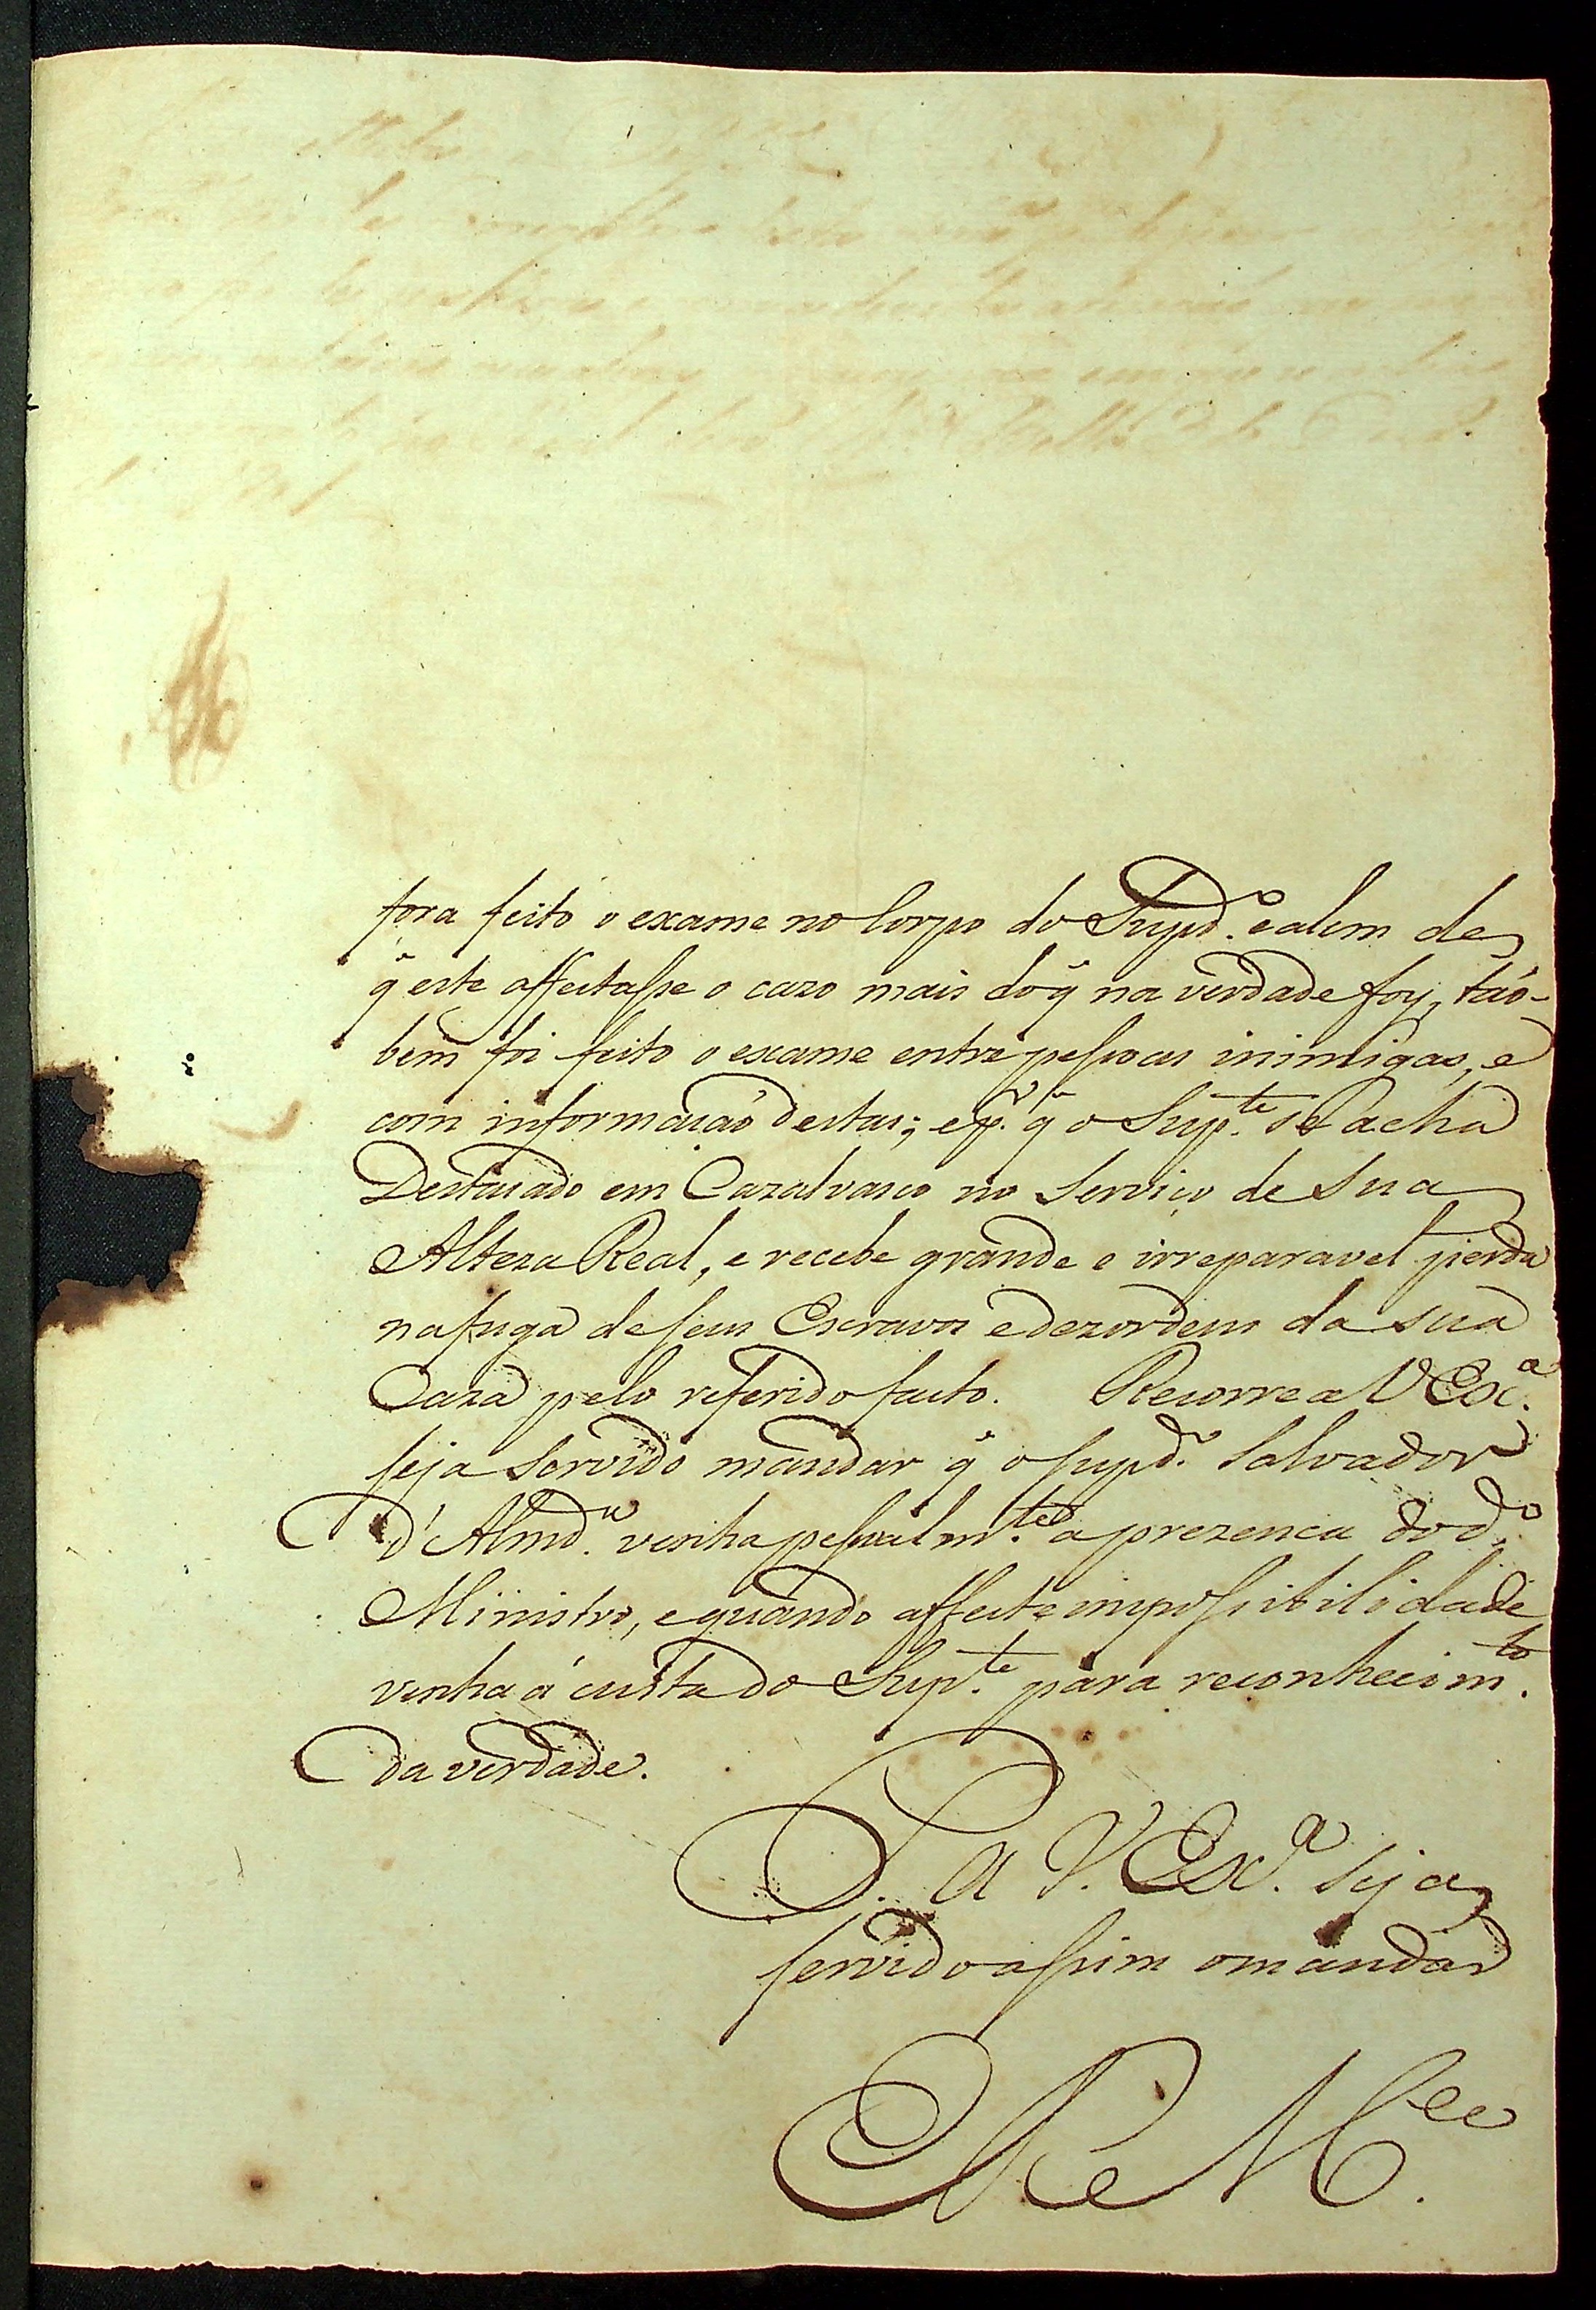 fora feito o exame no Corpo do Supd.º e alem de
q̃ este affectasse o cazo mais do q̃ na verdade foy, táo-
bem foi feito o exame entre pessoas inimigas, e
com informasáo destas; e p.r q̃ o Sup.te se acha
Destacado em Cazalvasco no Serviço de Sua
Alteza Real, e recebe grande e irreparavel perda
na fuga de seus Escravos e dezordem da sua
Caza pelo referido facto. Recorre a V Ex.ª
seja Servido mandar q̃ o supd.º Salvador
D'Almd.ª venha pessoalm.te a prezenca do d.º
Ministro, e quando affecte impossibilidade
venha á custa do Sup.te para reconhecim.to
da verdade.
P. a V. Ex.ª seja
servido assim o mandar
E R M.cee